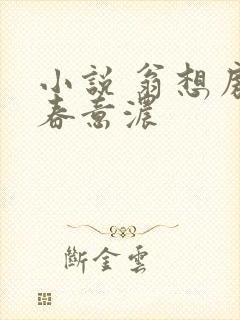 小說 翁想
春意濃
斷金雲